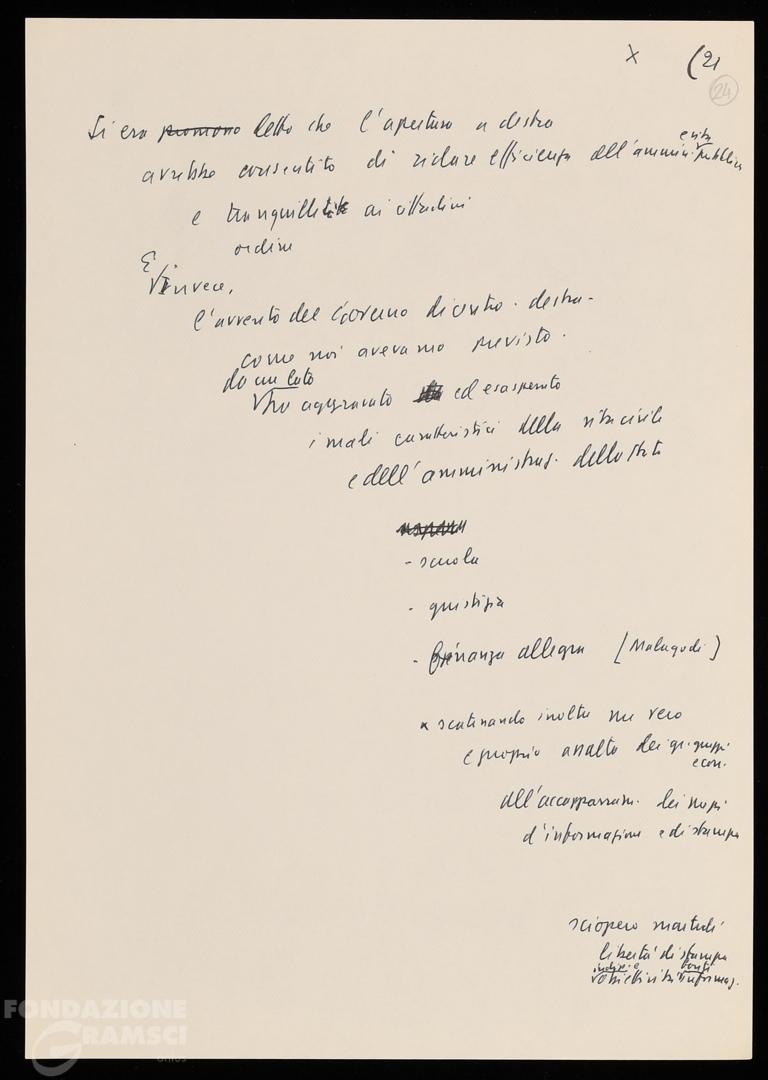 x (21
24
Si era promesso detto che l'apertura a destra
avrebbe consentito di ridare efficienza all'ammin. pubblica
e tranquillità ai cittadini
ordine
E
invece,
l'avvento del Governo di centro-destra -
come noi avevamo previsto -
da un lato
ha aggravato ed esasperato
i mali caratteristici della vita civile
e dell'amministraz. dello Stato
- scuola
- giustizia
- finanza allegra [Malagodi]
x scatenando inoltre un vero
e proprio assalto dei gr. gruppi
econ.
all'accaparram. dei mezzi
d'informazione e di stampa
sciopero martedì
libertà di stampa
obiettività informaz.
FONDAZIONE
GRAMSCI
onlus